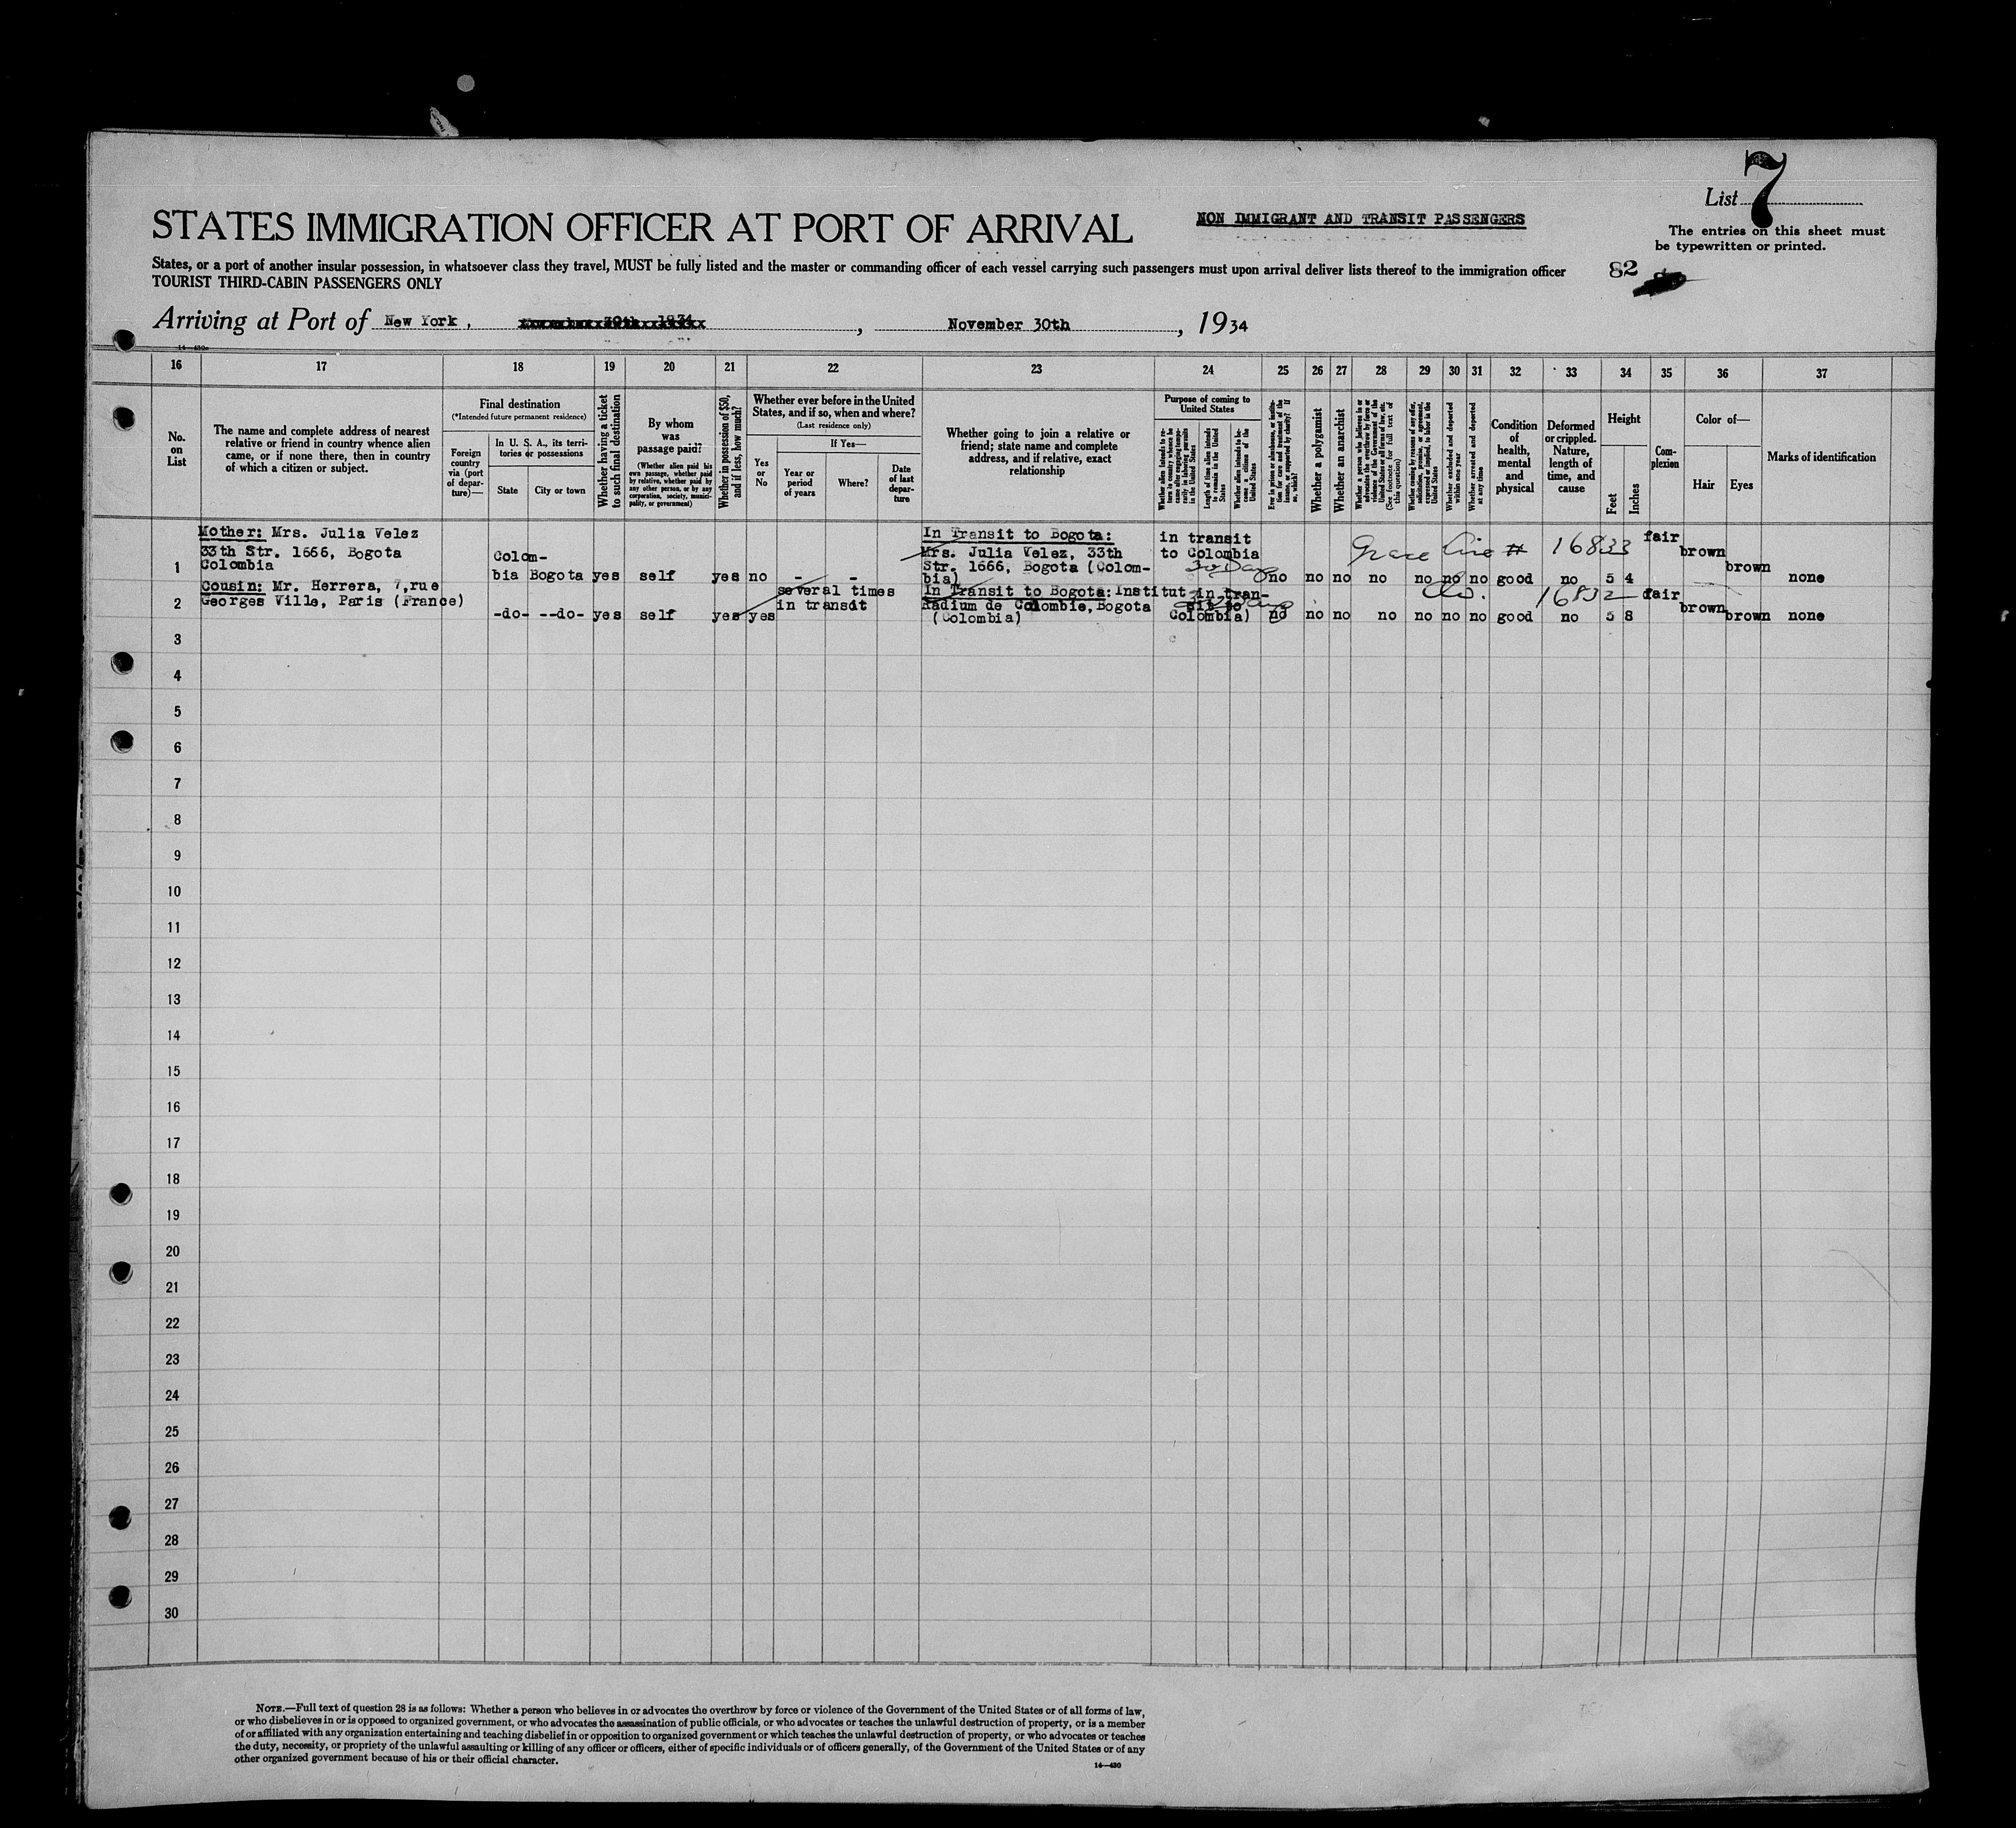 List 7
The entries on this sheet must
be typewritten or printed.
STATES IMMIGRATION OFFICER AT PORT OF ARRIVAL
NON IMMIGRANT AND TRANSIT PASSENGERS
States, or a port of another insular possession, in whatsoever class they travel, MUST be fully listed and the master or commanding officer of each vessel carrying such passengers must upon arrival deliver lists thereof to the immigration officer
82
TOURIST THIRD-CABIN PASSENGERS ONLY
Arriving at Port of New York, , November 30th, 1934
16 17 18 19 20 21 22 23 24 25 26 27 28 29 30 31 32 33 34 35 36 37
No.
on
List
The name and complete address of nearest
relative or friend in country whence alien
came, or if none there, then in country
of which a citizen or subject.
Final destination
(*Intended future permanent residence)
Foreign
country
via (port
of depar-
ture)—
In U. S. A., its terri-
tories or possessions
State
City or town
Whether having a ticket
to such final destination
By whom
was
passage paid?
(Whether alien paid his
own passage, whether paid
by relative, whether paid by
any other person, or by any
corporation, society, munici-
pality, or government)
Whether in possession of $50,
and if less, how much?
Whether ever before in the United
States, and if so, when and where?
(Last residence only)
Yes
or
No
If Yes—
Year or
period
of years
Where?
Date
of last
depar-
ture
Whether going to join a relative or
friend; state name and complete
address, and if relative, exact
relationship
Purpose of coming to
United States
Whether alien intends to re-
turn to country whence he
came after engaging tempo-
rarily in laboring pursuits
in the United States
Length of time alien intends
to remain in the United
States
Whether alien intends to be-
come a citizen of the
United States
Ever in prison or almshouse, or institu-
tion for care and treatment of the
insane, or supported by charity? If
so, which?
Whether a polygamist
Whether an anarchist
Whether a person who believes in or
advocates the overthrow by force or
violence of the Government of the
United States or all forms of law, etc.
(See footnote for full text of
this question)
Whether coming by reasons of any offer,
solicitation, promise, or agreement,
expressed or implied, to labor in the
United States
Whether excluded and deported
within one year
Whether arrested and deported
at any time
Condition
of
health,
mental
and
physical
Deformed
or crippled.
Nature,
length of
time, and
cause
Height
Feet
Inches
Com-
plexion
Color of—
Hair
Eyes
Marks of identification
1
Mother: Mrs. Julia Velez
33th Str. 1666, Bogota
Colombia
Colom-
bia Bogota yes self yes no - -
In Transit to Bogota:
Mrs. Julia Velez, 33th
Str. 1666, Bogota (Colom-
bia)
in transit
to Colombia
30 Days
Grace Line # 16833
no no no no no no no good no 5 4 fair brown brown none
2
Cousin: Mr. Herrera, 7,rue
Georges Ville, Paris (France)
-do- --do- yes self yes yes
several times
in transit
In Transit to Bogota: Institut
Radium de Colombie, Bogota
(Colombia)
in tran-
sit to
Colombia)
16832
no no no no no no no good no 5 8 fair brown brown none
3
4
5
6
7
8
9
10
11
12
13
14
15
16
17
18
19
20
21
22
23
24
25
26
27
28
29
30
NOTE.—Full text of question 28 is as follows: Whether a person who believes in or advocates the overthrow by force or violence of the Government of the United States or of all forms of law,
or who disbelieves in or is opposed to organized government, or who advocates the assassination of public officials, or who advocates or teaches the unlawful destruction of property, or is a member
of or affiliated with any organization entertaining and teaching disbelief in or opposition to organized government or which teaches the unlawful destruction of property, or who advocates or teaches
the duty, necessity, or propriety of the unlawful assaulting or killing of any officer or officers, either of specific individuals or of officers generally, of the Government of the United States or of any
other organized government because of his or their official character.
14—430